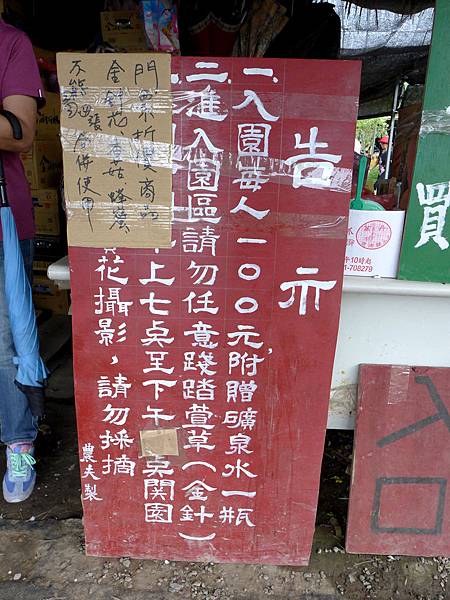 買
午10時起
1-708279
告示
一.入園每人一○○元,附贈礦泉水一瓶
二.准入園區請勿任意踐踏萱草(金針)
上七点至下午 点関園
花攝影,請勿採摘
農夫製
門票折變商品
金針花 香菇 蜂蜜
不能 張合併使用
入口